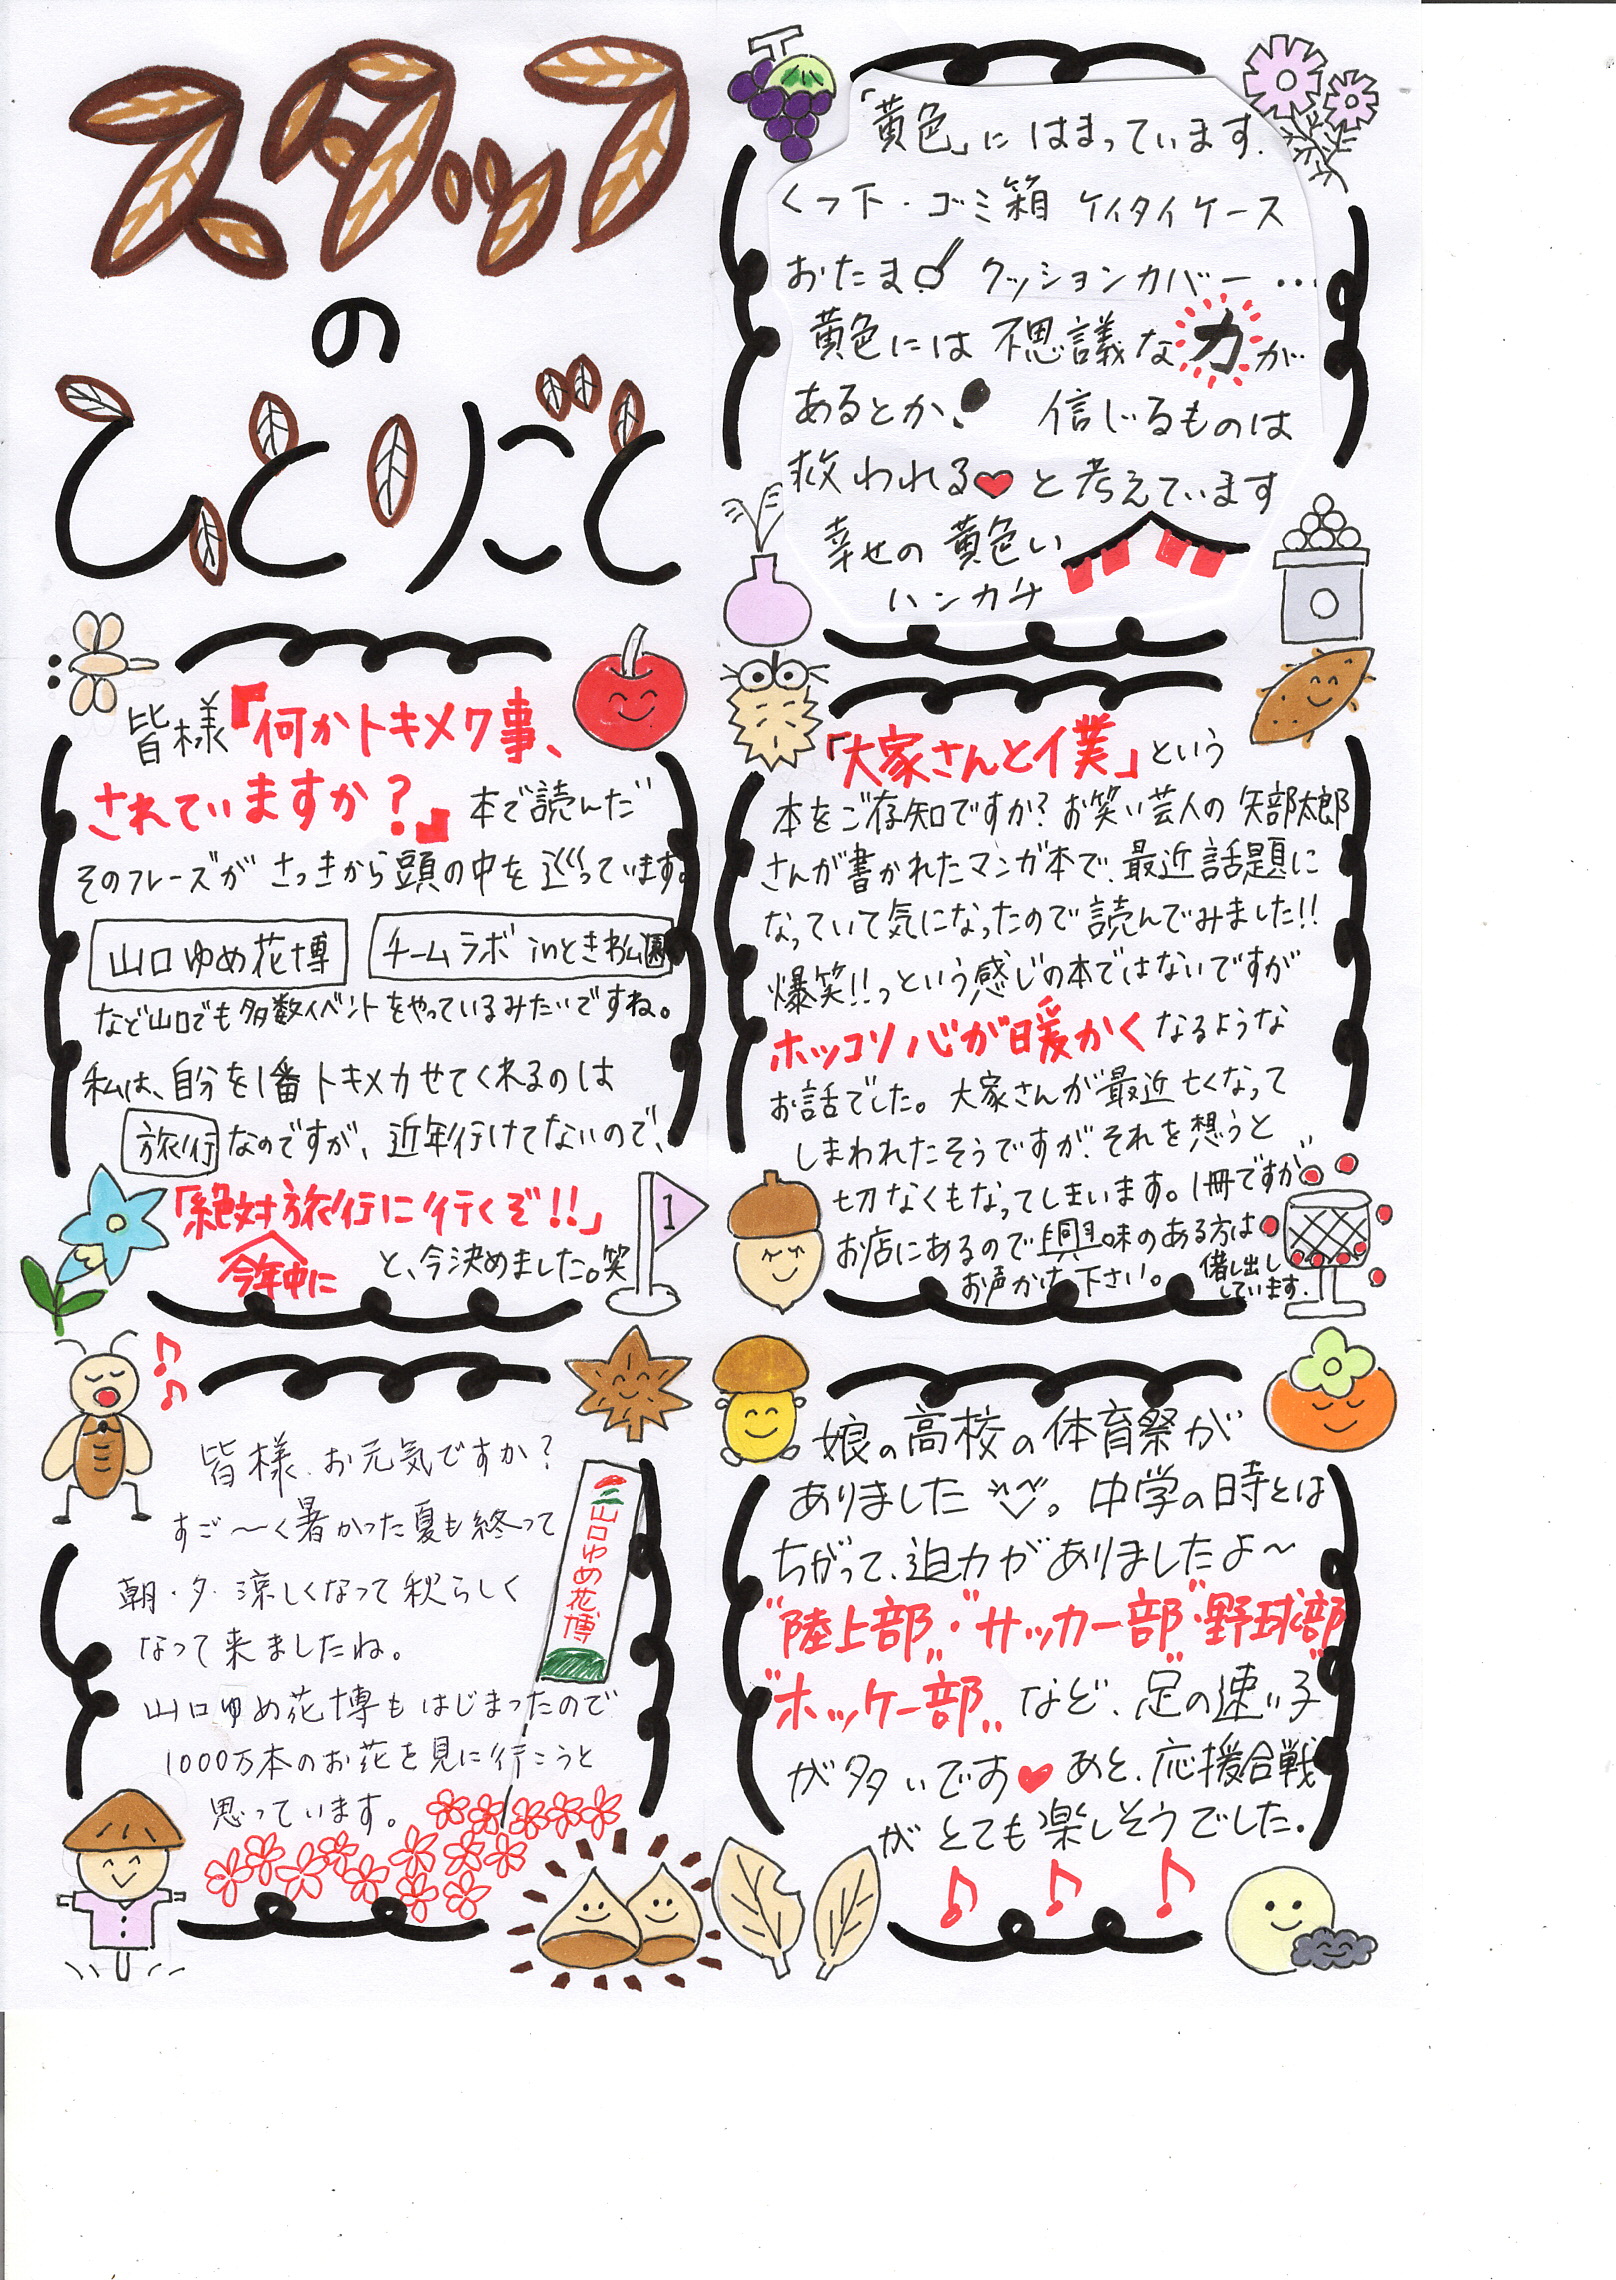 スタッフ
の
ひとりごと
「黄色」に はまっています.
くつ下・ゴミ箱 ケイタイケース
おたま クッションカバー …
黄色には 不思議な力が
あるとか! 信じるものは
救われる♥と考えています
幸せの 黄色い
ハンカチ
皆様『何かトキメク事、
されていますか?』本で読んだ
そのフレーズが さっきから頭の中を 巡っています。
山口ゆめ花博 チームラボ inときわ公園
など山口でも多数イベントをやっているみたいですね。
私は、自分を1番トキメカせてくれるのは
旅行なのですが、近年行けてないので、
「絶対旅行に行くぞ!!」
今年中に と、今決めました。笑
1
「大家さんと僕」という
本をご存知ですか?お笑い芸人の 矢部太郎
さんが書かれたマンガ本で、最近話題に
なっていて気になったので読んでみました!!
爆笑!!っという感じの本ではないですが
ホッコリ心が暖かくなるような
お話でした。大家さんが最近亡くなって
しまわれたそうですが、それを想うと
切なくもなってしまいます。1冊ですが、
お店にあるので興味のある方は
お声かけ下さい。
借し出し
しています.
皆様、お元気ですか?
すご〜く暑かった夏も終って
朝・夕・涼しくなって秋らしく
なって来ましたね。
山口ゆめ花博もはじまったので
1000万本のお花を見に行こうと
思っています。
山口ゆめ花博
娘の高校の体育祭が
ありました。中学の時とは
ちがって、迫力がありましたよ〜
"陸上部"・"サッカー部"・"野球部"
"ホッケー部"など、足の速い子
が多いです♥あと、応援合戦
がとても楽しそうでした.